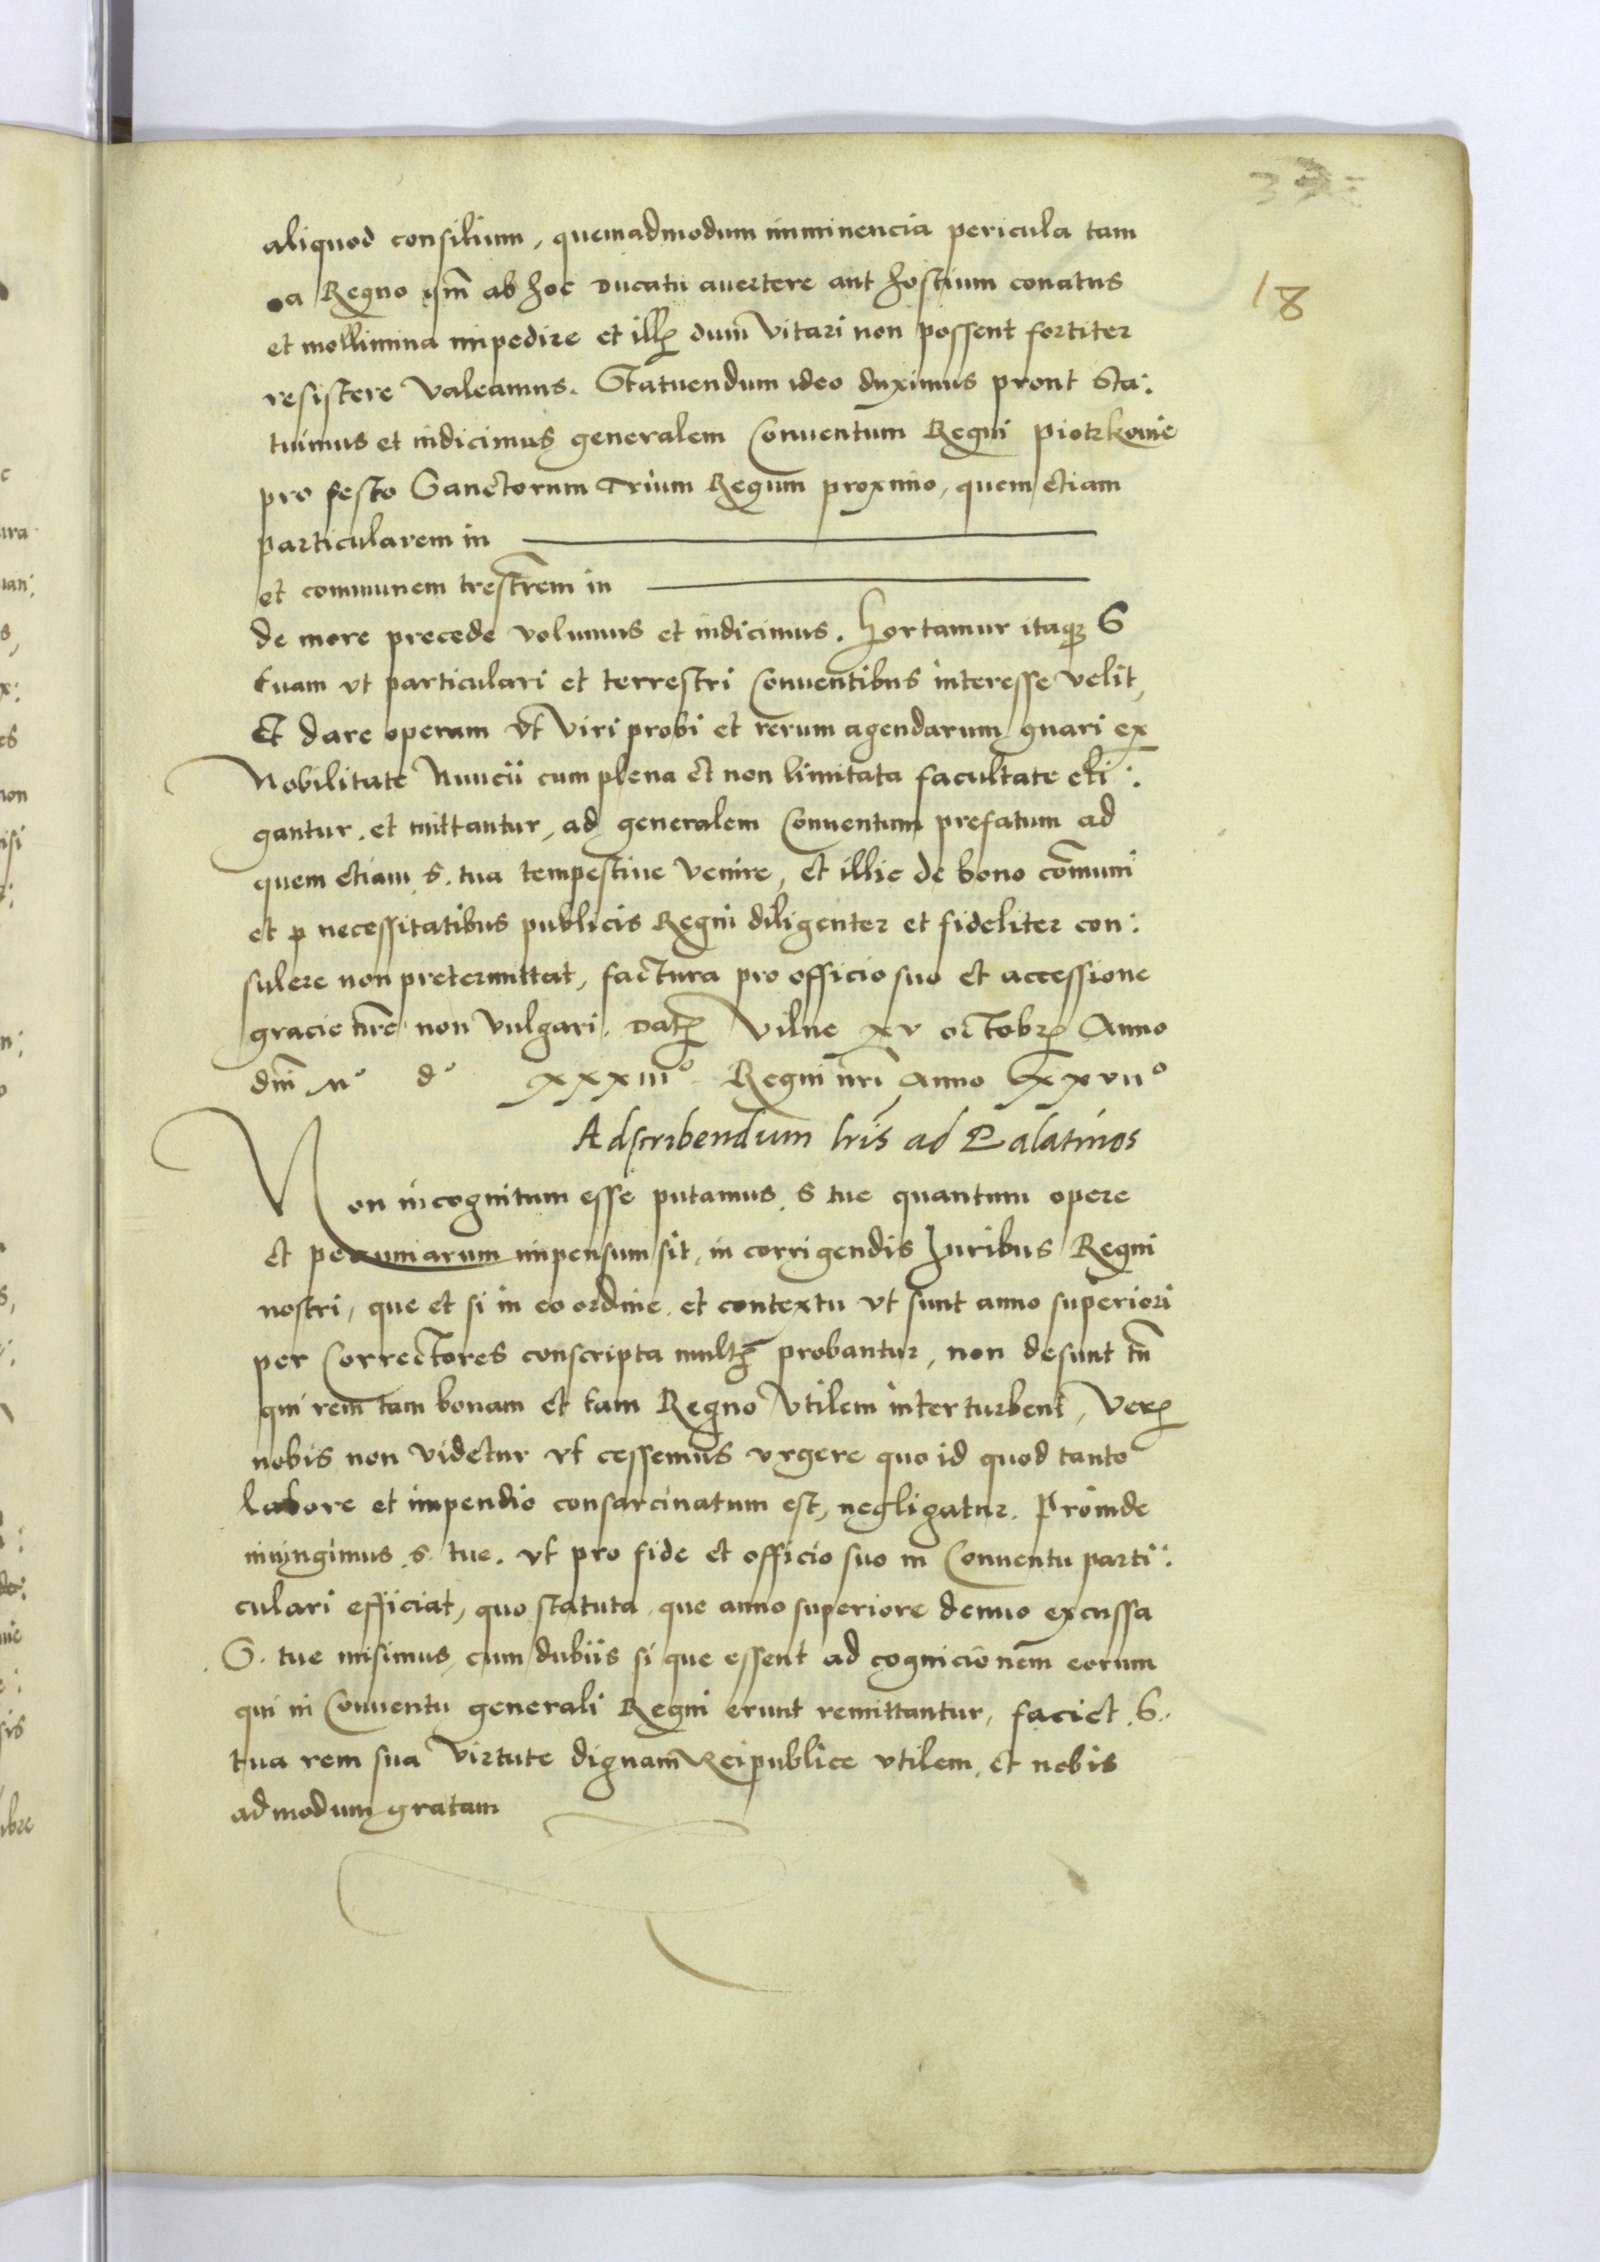 18
aliquod consilium, quemadmodum imminencia pericula tam
a Regno qm̄ ab hoc Ducatu auertere aut hostium conatus
et mollimina impedire et illꝭ dum vitari non possent fortiter
resistere valeamus. Statuendum ideo duximus prout Sta:
tuimus et indicimus generalem Conuentum Regni Piotrkouie
pro festo Sanctorum Trium Regum proximo, quem etiam
particularem in
et communem trestrem in
de more precede volumus et indicimus. Hortamur itaqꝫ S
tuam vt particulari et terrestri Conuentibus interesse velit,
Et dare operam vt viri probi et rerum agendarum gnari ex
Nobilitate Nuncii cum plena et non limitata facultate eli:
gantur. et mittantur, ad generalem Conuentum prefatum ad
quem etiam S. tua tempestiue venire, et illic de bono com̄uni
et p necessitatibus publicis Regni diligenter et fideliter con:
sulere non pretermittat, factura pro officio suo et accessione
gracie nr̄e non vulgari. Datꝭ Vilne xv octobrꝭ Anno
dni M° d° xxxiii° Regni nr̄i Anno xxvii°
Adscribendum lr̄is ad Palatinos
Non incognitum esse putamus S tue quantum opere
et pecuniarum impensum sit, in corrigendis Iuribus Regni
nostri, que et si in eo ordine et contextu vt sunt anno superiori
per Correctores conscripta multꝭ probantur, non desunt tn̄
qui rem tam bonam et tam Regno vtilem interturbent, verꝭ
nobis non videtur vt cessemus vrgere quo id quod tanto
labore et impendio consarcinatum est, negligatur. Proinde
iniungimus S. tue. vt pro fide et officio suo in Conuentu parti:
culari efficiat, quo statuta que anno superiore denuo excussa
S. tue misimus, cum dubiis si que essent ad cognicionem eorum
qui in Conuentu generali Regni erunt remittantur, faciet S.
tua rem sua virtute dignam Reipublice vtilem et nobis
admodum gratam